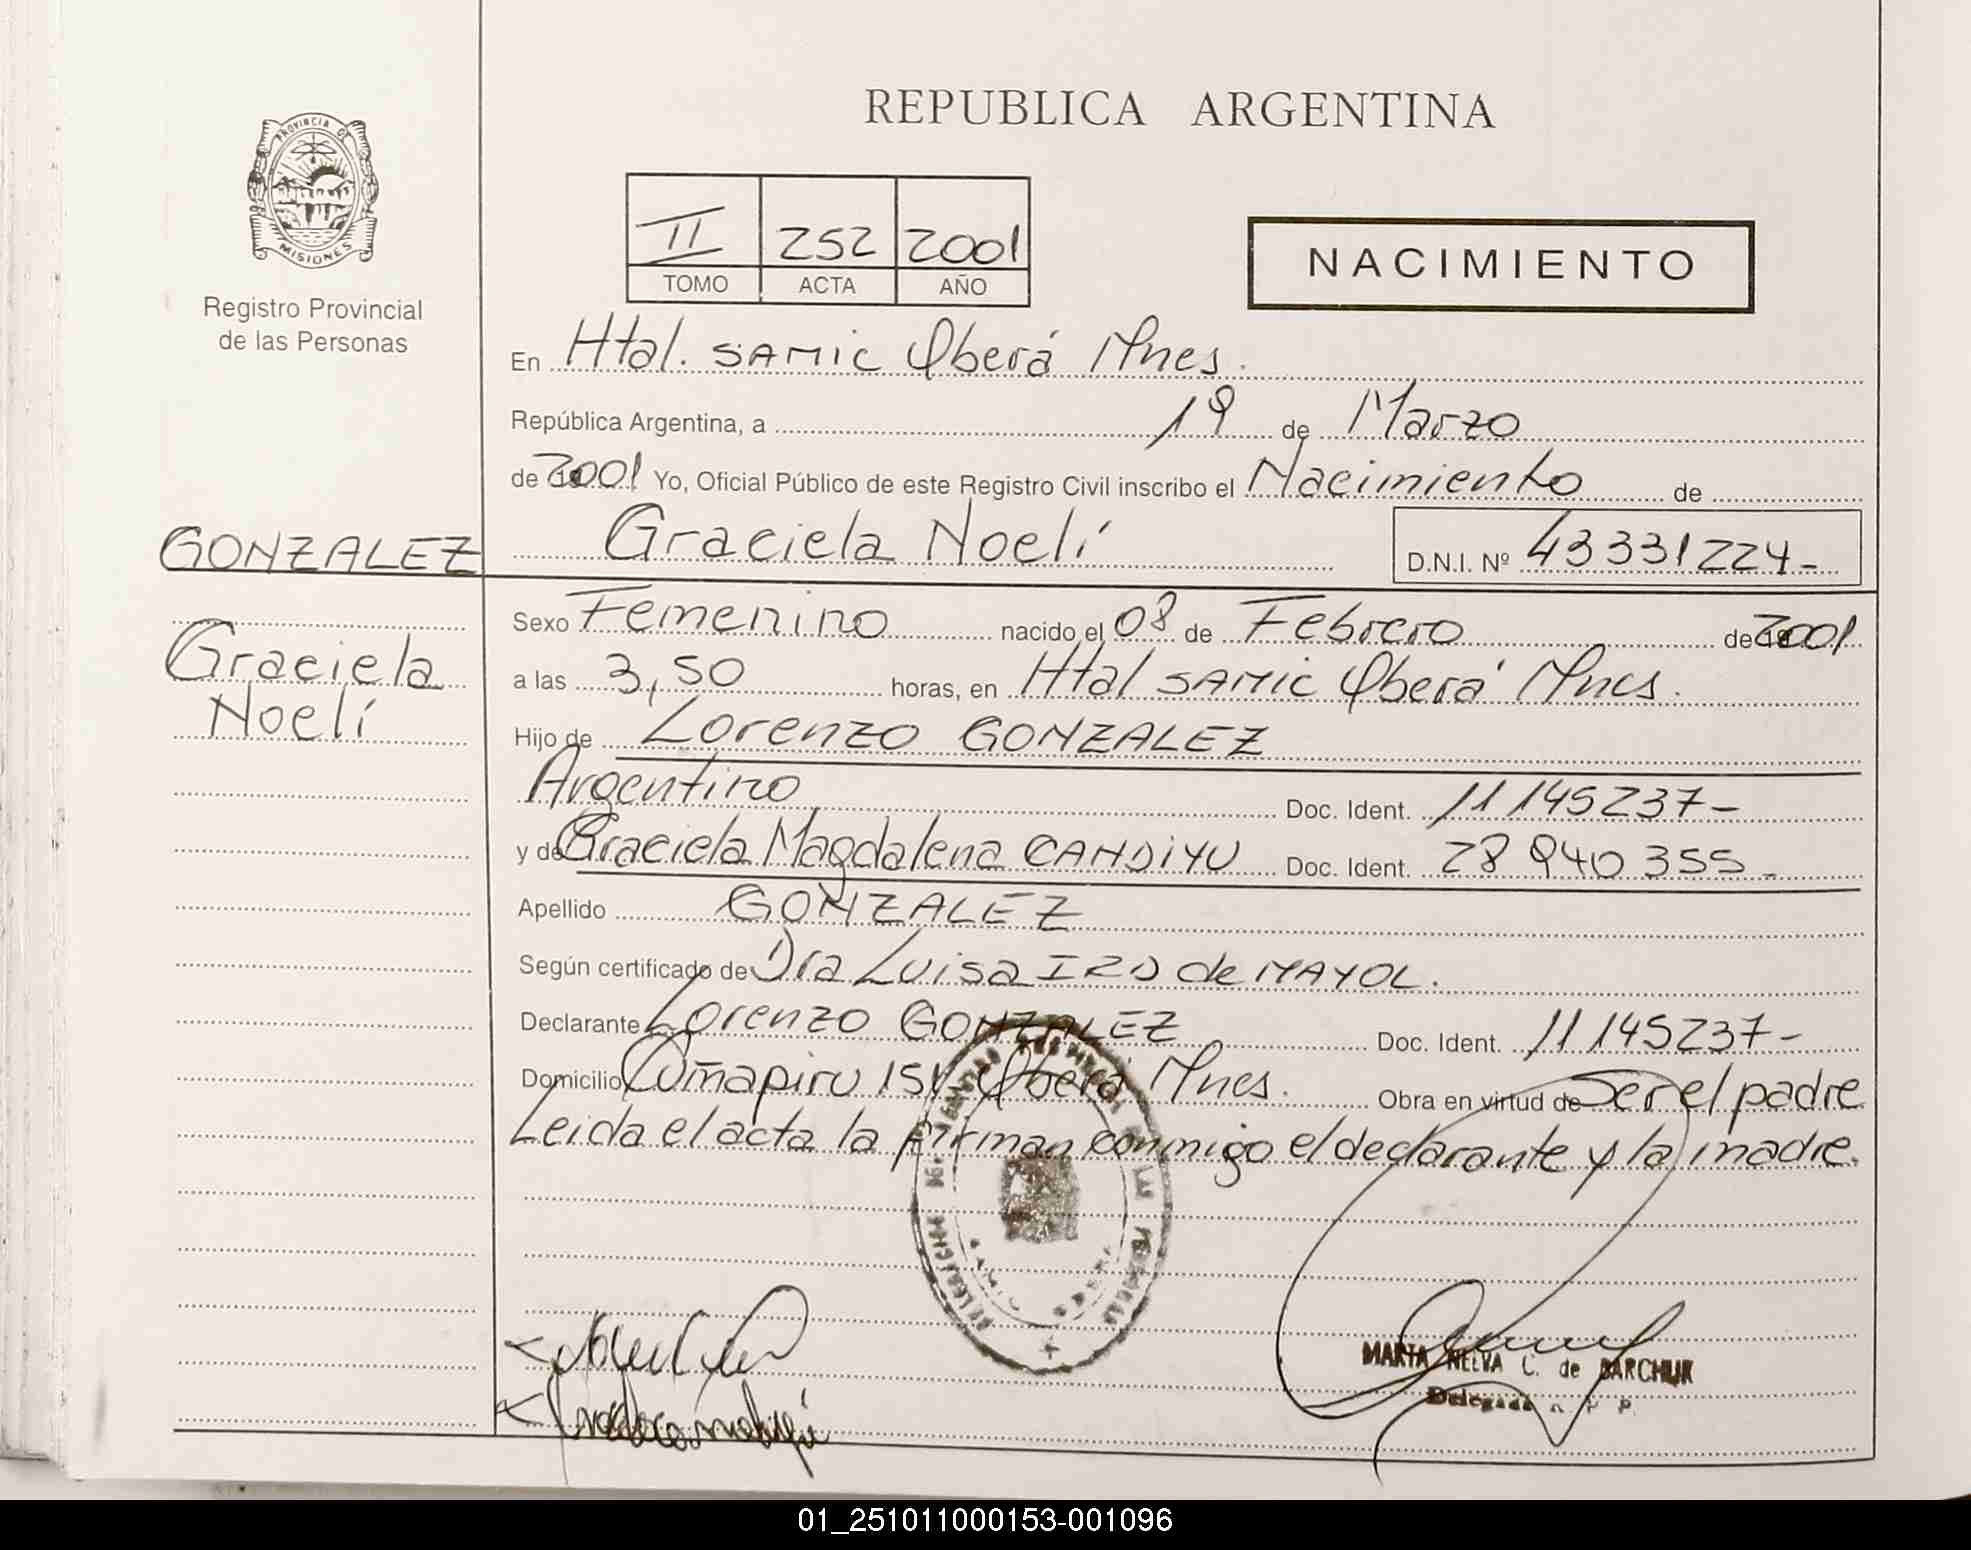 REPUBLICA ARGENTINA
PROVINCIA DE
MISIONES
Registro Provincial
de las Personas
II 252 2001
TOMO ACTA AÑO
NACIMIENTO
En Htal. SAMIC Oberá Mnes.
República Argentina, a 19 de Marzo
de 2001 Yo, Oficial Público de este Registro Civil inscribo el Nacimiento de
GONZALEZ
Graciela Noelí D.N.I. Nº 43331224-
Graciela
Noelí
Sexo Femenino nacido el 08 de Febrero de 2001
a las 3,50 horas, en Htal SAMIC Oberá Mnes.
Hijo de Lorenzo GONZALEZ
Argentino Doc. Ident. 11145237-
y de Graciela Magdalena CANDIYU Doc. Ident. 28 940 355-
Apellido GONZALEZ
Según certificado de Dra Luisa de MAYOL.
Declarante Lorenzo GONZALEZ Doc. Ident. 11145237-
Domicilio Cuñapiru Oberá Mnes. Obra en virtud de Ser el padre
Leida el acta la firman conmigo el declarante y la madre.
MARTA NELVA C. de BARCHUK
Delegada R P P
01_251011000153-001096